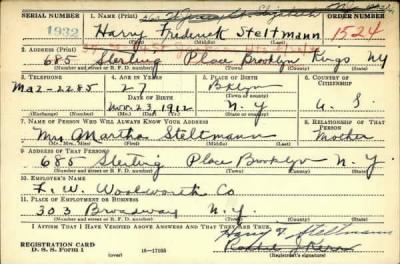 SERIAL NUMBER 1. NAME (Print) ORDER NUMBER
1932 Harry Frederick Steltmann 1524
(First) (Middle) (Last)
2. ADDRESS (Print)
685 Sterling Place Brooklyn Kings NY
(Number and street or R. F. D. number) (Town) (County) (State)
3. TELEPHONE 4. AGE IN YEARS 5. PLACE OF BIRTH 6. COUNTRY OF CITIZENSHIP
27 Bklyn
Ma 2-2285 DATE OF BIRTH (Town or county)
Nov. 23, 1912 N. Y. U. S.
(Exchange) (Number) (Mo.) (Day) (Yr.) (State or country)
7. NAME OF PERSON WHO WILL ALWAYS KNOW YOUR ADDRESS 8. RELATIONSHIP OF THAT PERSON
Mrs Martha Steltmann Mother
(Mr., Mrs., Miss) (First) (Middle) (Last)
9. ADDRESS OF THAT PERSON
685 Sterling Place Brooklyn N. Y.
(Number and street or R. F. D. number) (Town) (County) (State)
10. EMPLOYER'S NAME
F. W. Woolworth Co
11. PLACE OF EMPLOYMENT OR BUSINESS
303 Broadway N. Y.
(Number and street or R. F. D. number) (Town) (County) (State)
I AFFIRM THAT I HAVE VERIFIED ABOVE ANSWERS AND THAT THEY ARE TRUE.
Harry F Steltmann
REGISTRATION CARD
D. S. S. FORM 1 16-17105 (Registrant's signature)